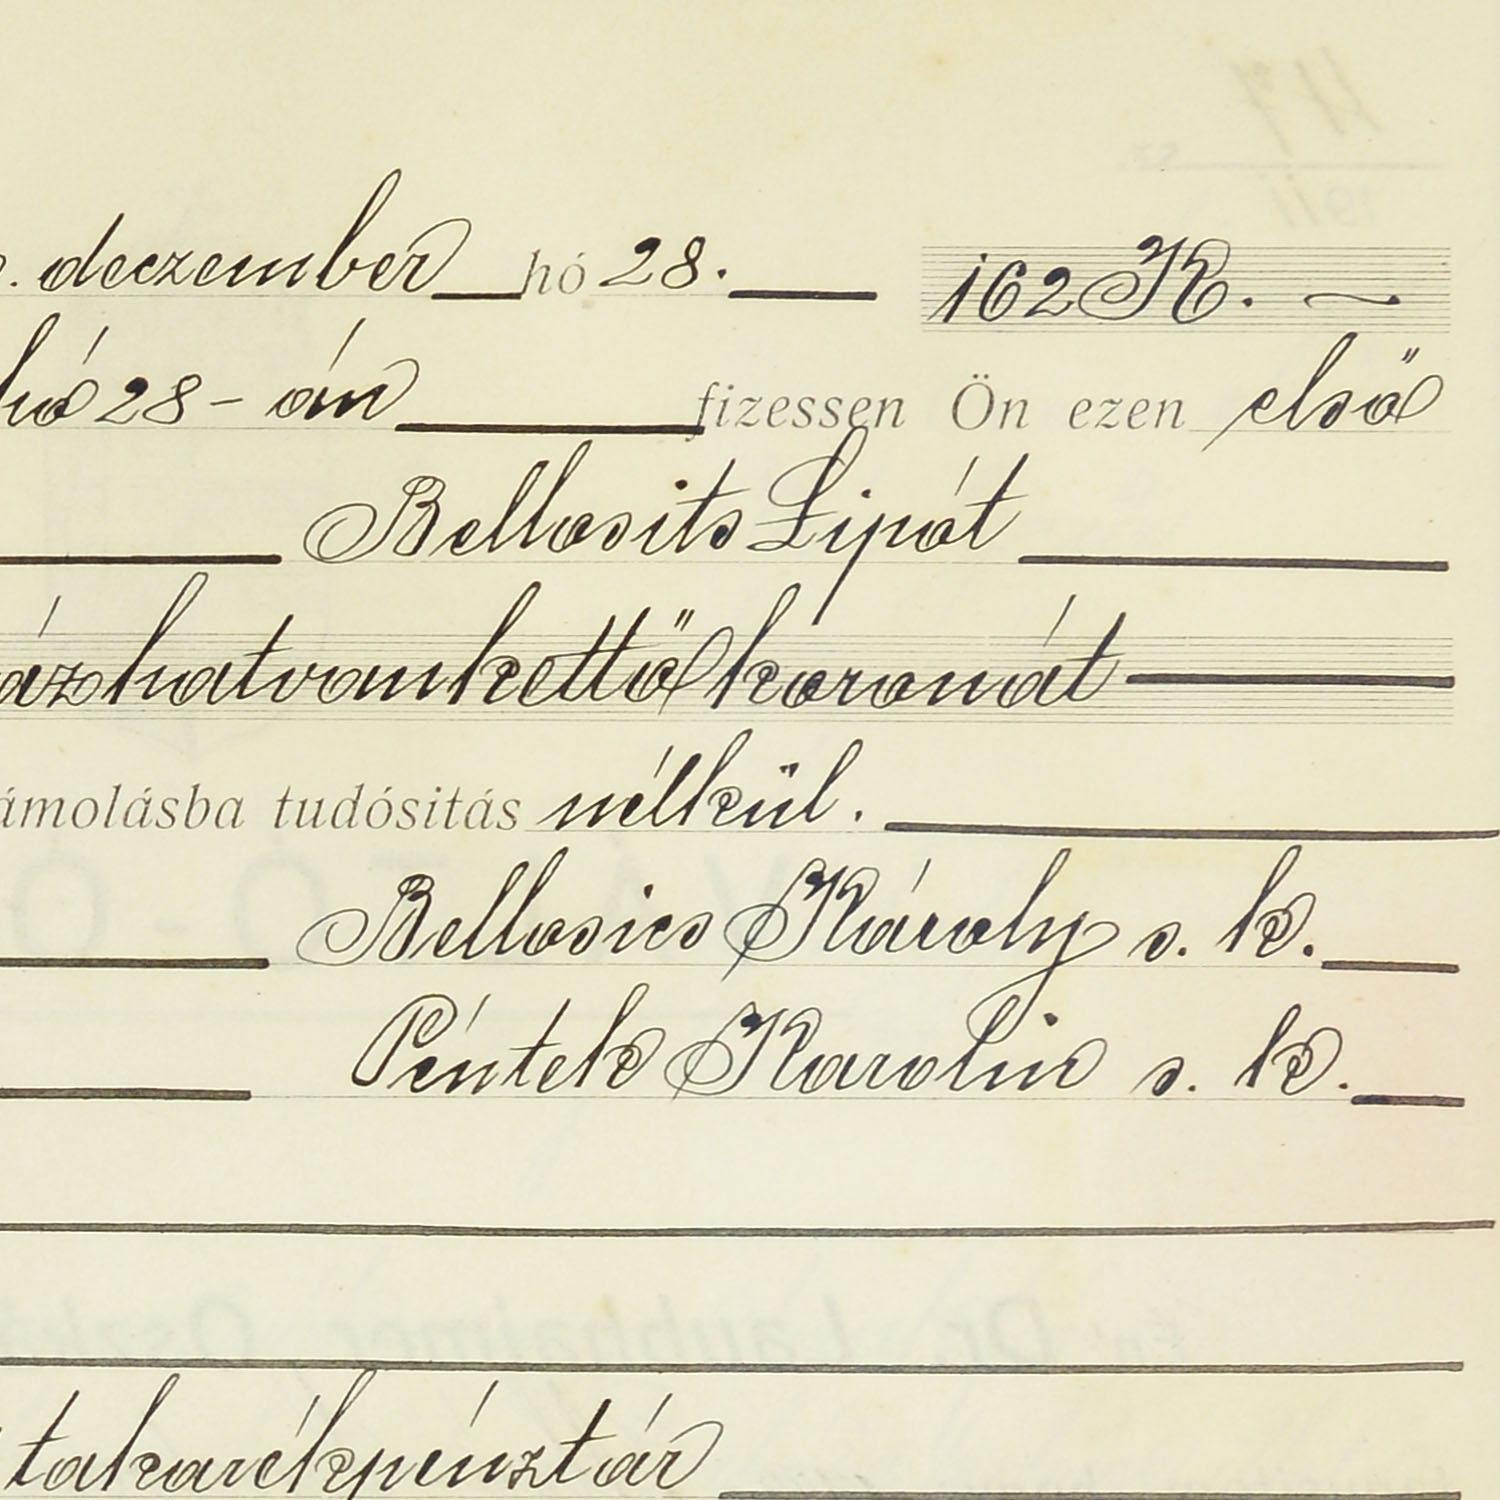 deczember hó 28. 162 K. —
hó 28-án fizessen Ön ezen első
Bellosits Lipót
ázhatvankettő koronát
ámolásba tudósitás nélkül.
Bellosics Károly s. k.
Péntek Karolin s. k.
takarékpénztár